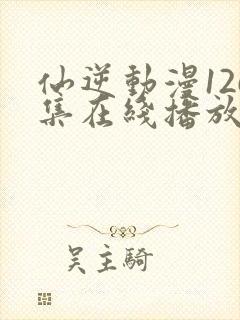 仙逆動漫12
集在綫播放
吴主騎